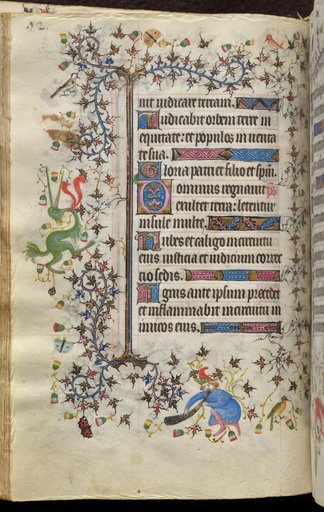 92.
nit iudicare terram.
Iudicabit orbem terre in
equitate: et populos in uerita
te sua.
Gloria patri et filio et spiri.
Dominus regnauit ps
exultet terra: letentur
insule multe.
Nubes et caligo in circuitu
eius iusticia et iudicium correc
tio sedis.
Ignis ante ipsum precedet
et inflammabit in circuitu in
imicos eius.